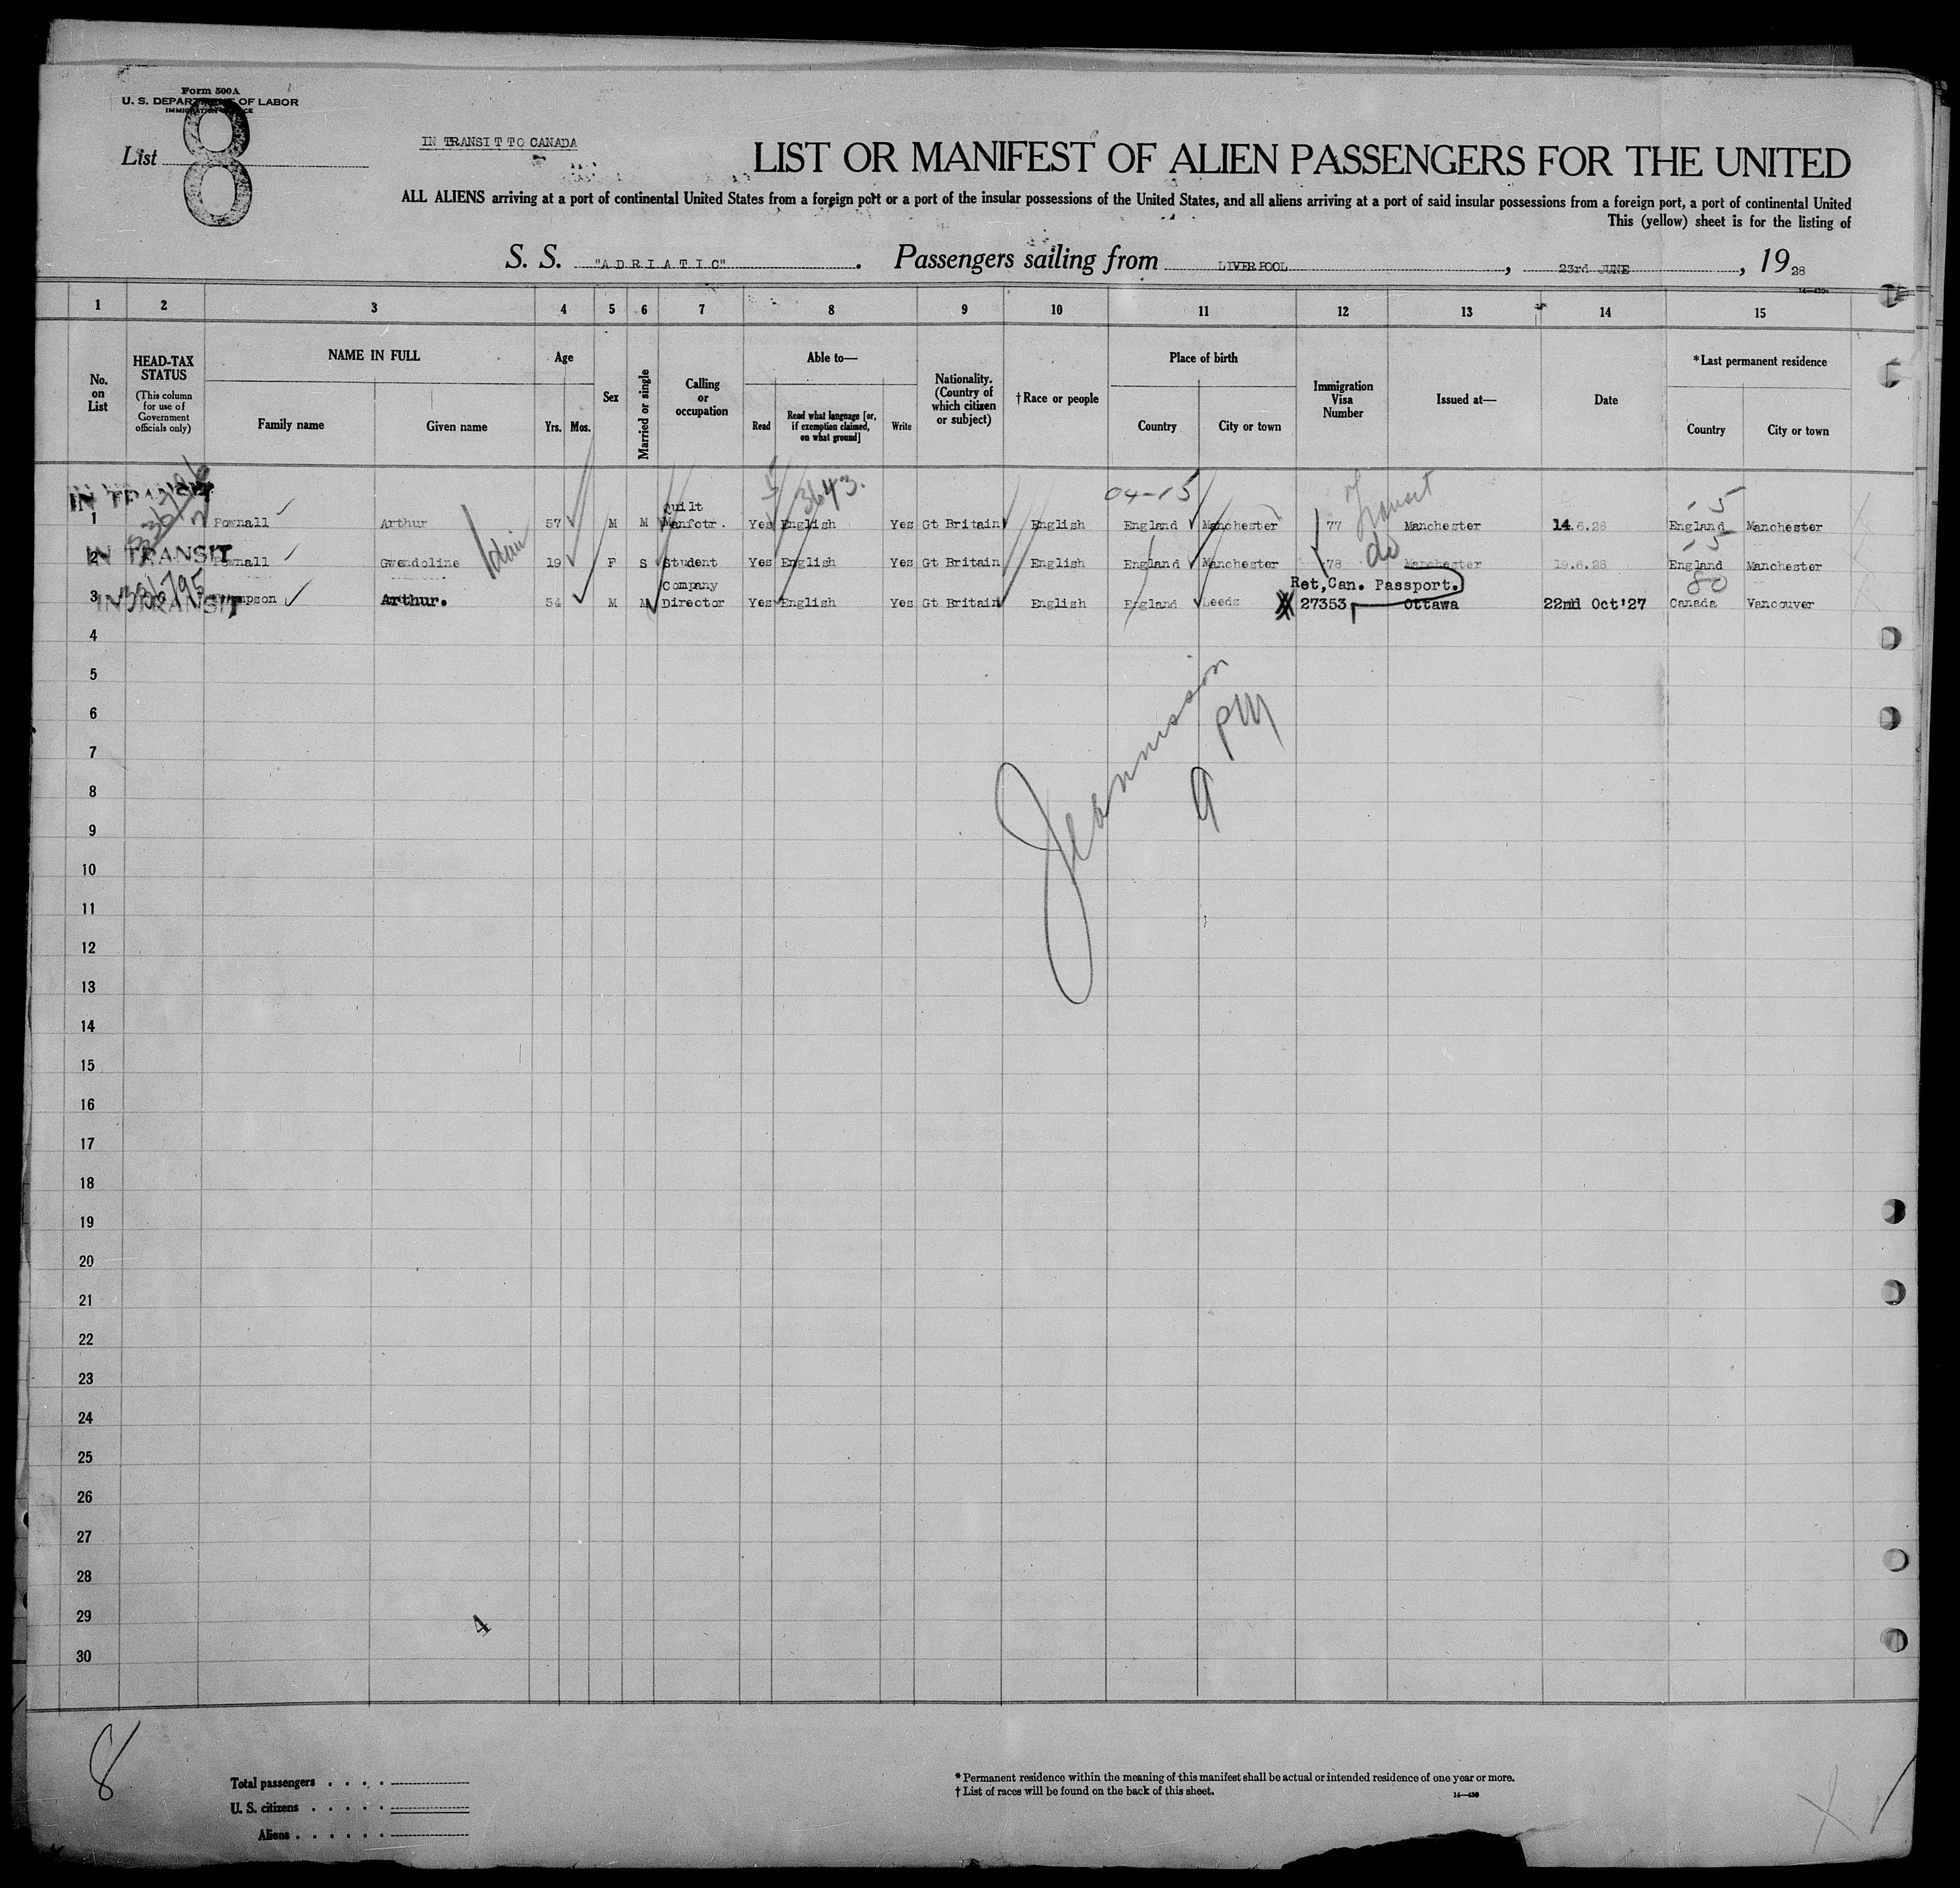 Form 500A
U. S. DEPARTMENT OF LABOR
List 8
IN TRANSIT TO CANADA
LIST OR MANIFEST OF ALIEN PASSENGERS FOR THE UNITED
ALL ALIENS arriving at a port of continental United States from a foreign port or a port of the insular possessions of the United States, and all aliens arriving at a port of said insular possessions from a foreign port, a port of continental United
This (yellow) sheet is for the listing of
S. S. "ADRIATIC". Passengers sailing from LIVERPOOL, 23rd JUNE, 1928
1 2 3 4 5 6 7 8 9 10 11 12 13 14 15
No. on List
HEAD-TAX STATUS (This column for use of Government officials only)
NAME IN FULL
Family name Given name
Age
Yrs. Mos.
Sex
Married or single
Calling or occupation
Able to—
Read Read what language [or, if exemption claimed, on what ground] Write
Nationality. (Country of which citizen or subject)
†Race or people
Place of birth
Country City or town
Immigration Visa Number
Issued at—
Date
*Last permanent residence
Country City or town
3643. 04-15 Transit -5
IN TRANSIT
1 Pownall Arthur 57 M M Quilt Manfctr. Yes English Yes Gt Britain English England Manchester 77 Manchester 14.6.28 England Manchester
do -5
IN TRANSIT
2 Pownall Gwendoline 19 F S Student Yes English Yes Gt Britain English England Manchester 78 Manchester 19.6.28 England Manchester
336795 Ret,Can. Passport. 80
IN TRANSIT
3 Arthur. 54 M M Company Director Yes English Yes Gt Britain English England Leeds 27353 Ottawa 22nd Oct'27 Canada Vancouver
4
5
6
7
8
9
10
11
12
13
14
15
16
17
18
19
20
21
22
23
24
25
26
27
28
29
30
4
8
Total passengers . . . .
U. S. citizens . . . . .
Aliens . . . . . .
* Permanent residence within the meaning of this manifest shall be actual or intended residence of one year or more.
† List of races will be found on the back of this sheet.
14—430